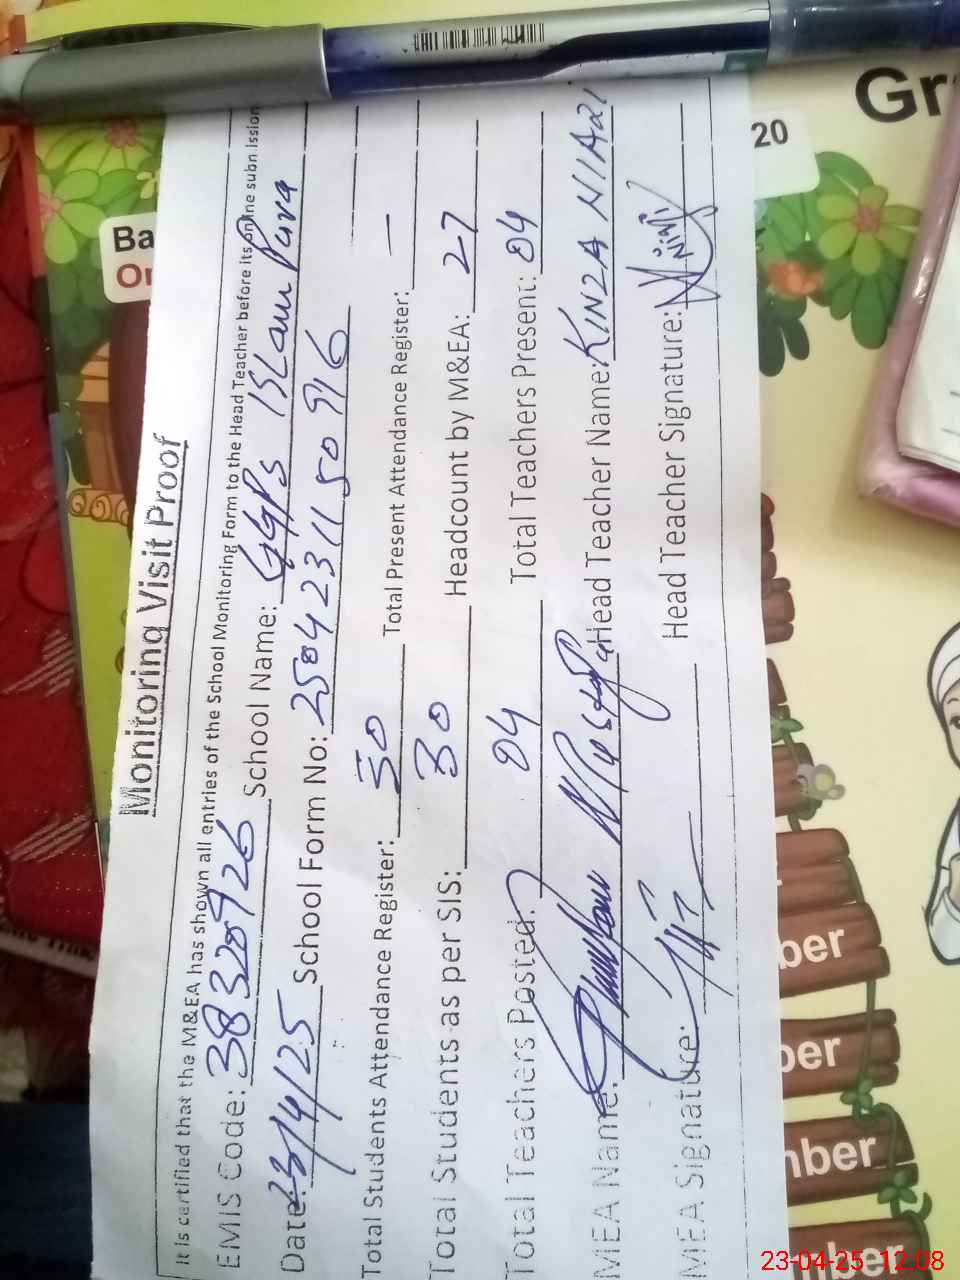 Monitoring Visit Proof
It is certified that the M&EA has shown all entries of the School Monitoring Form to the Head Teacher before its online submission
EMIS Code: 38320926 School Name: GGPS Islam Pura
Date: 23/4/25 School Form No: 2504231150916
Total Students Attendance Register: 30 Total Present Attendance Register: —
Total Students as per SIS: 30 Headcount by M&EA: 27
Total Teachers Posted: 04 Total Teachers Present: 04
MEA Name: Head Teacher Name: KINZA NIAZI
MEA Signature: Head Teacher Signature: Niazi
20
Gr
Ba
On
ber
ber
nber
nber
23-04-25 12:08